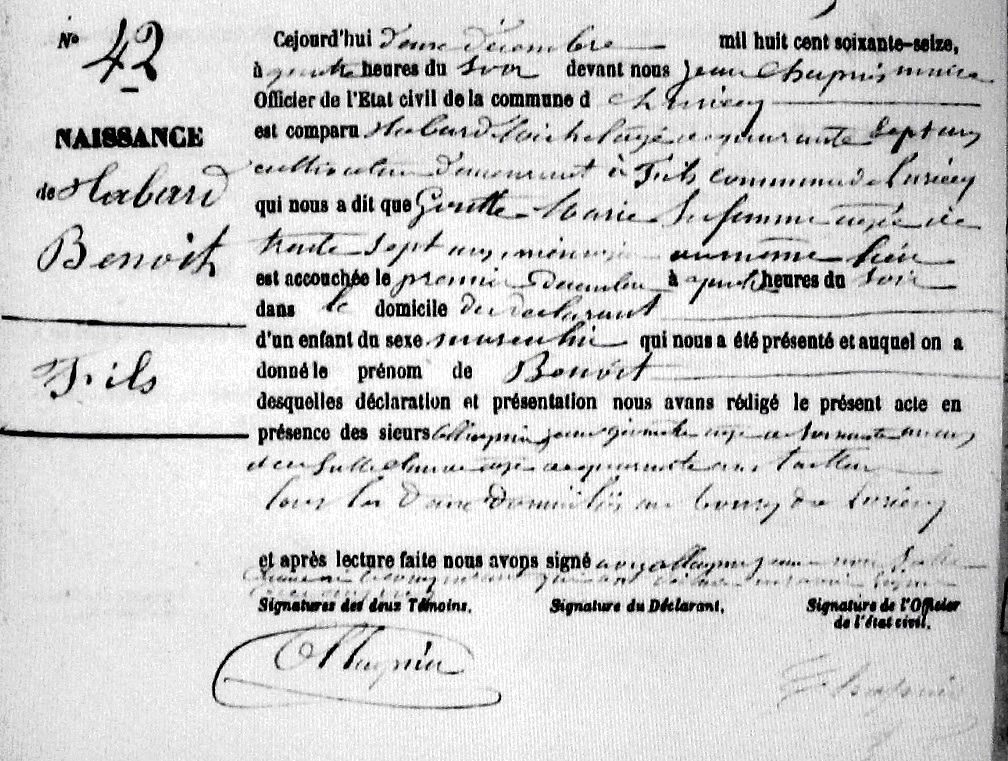 No 42
NAISSANCE
de Habard
Benoit
Fils
Cejourd'hui deux décembre mil huit cent soixante-seize,
à quatre heures du Soir devant nous Jean Chapuis maire
Officier de l'Etat civil de la commune d
est comparu Habard Michel agé de quarante Sept ans
cultivateur demeurant à Fils commune de Luriecq
qui nous a dit que Goutte Marie Sa femme agée de
trente Sept ans, au même lieu
est accouchée le premier décembre à heures du Soir
dans le domicile du declarant
d'un enfant du sexe masculin qui nous a été présenté et auquel on a
donné le prénom de Benoît
desquelles déclaration et présentation nous avans rédigé le présent acte en
présence des sieurs agé de Soixante ans
agé de quarante ans
tous les deux domiciliés au bourg de Luriecq
et après lecture faite nous avons signé avec
Signatures des deux Témoins. Signature du Déclarant, Signature de l'Officier
de l'état civil.